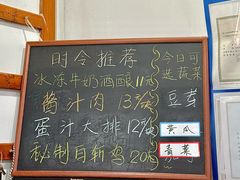 时令推荐
冰冻牛奶酒酿11元
酱汁肉 13元/块
蛋汁大排12元/块
秘制白斩鸡 20
今日可
选蔬菜
豆芽
黄瓜
青菜